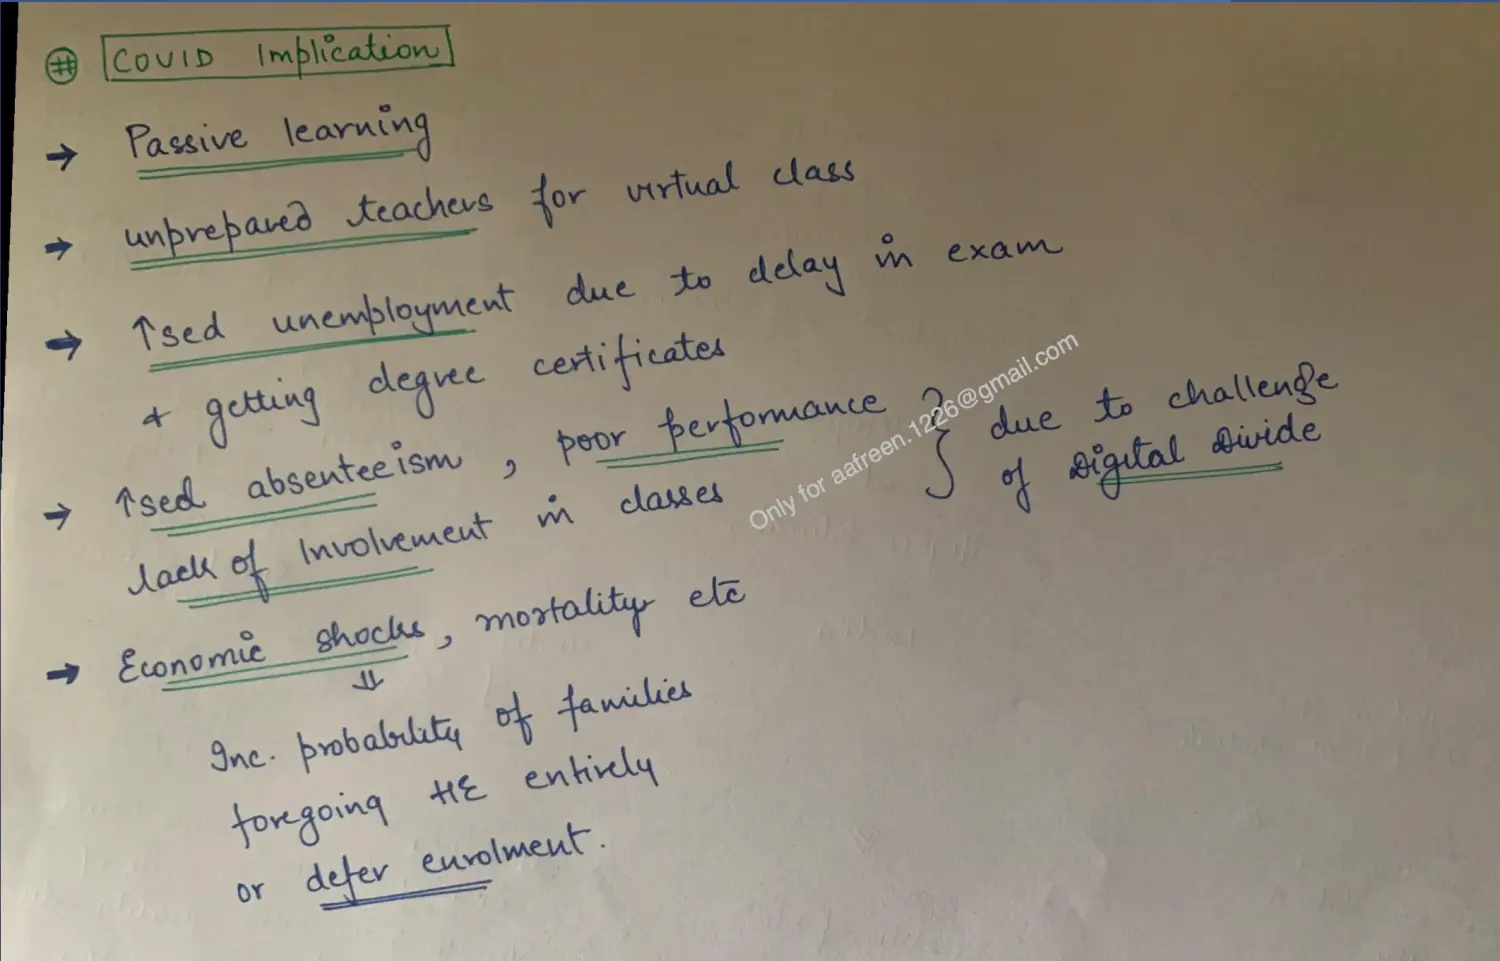 # COVID Implication
→ Passive learning
→ unprepared teachers for virtual class
→ ↑sed unemployment due to delay in exam
+ getting degree certificates
→ ↑sed absenteeism, poor performance } due to challenge
lack of Involvement in classes of Digital Divide
→ Economic shocks, mortality etc
⇓
Inc. probability of families
foregoing HE entirely
or defer enrolment.
Only for aafreen.1226@gmail.com